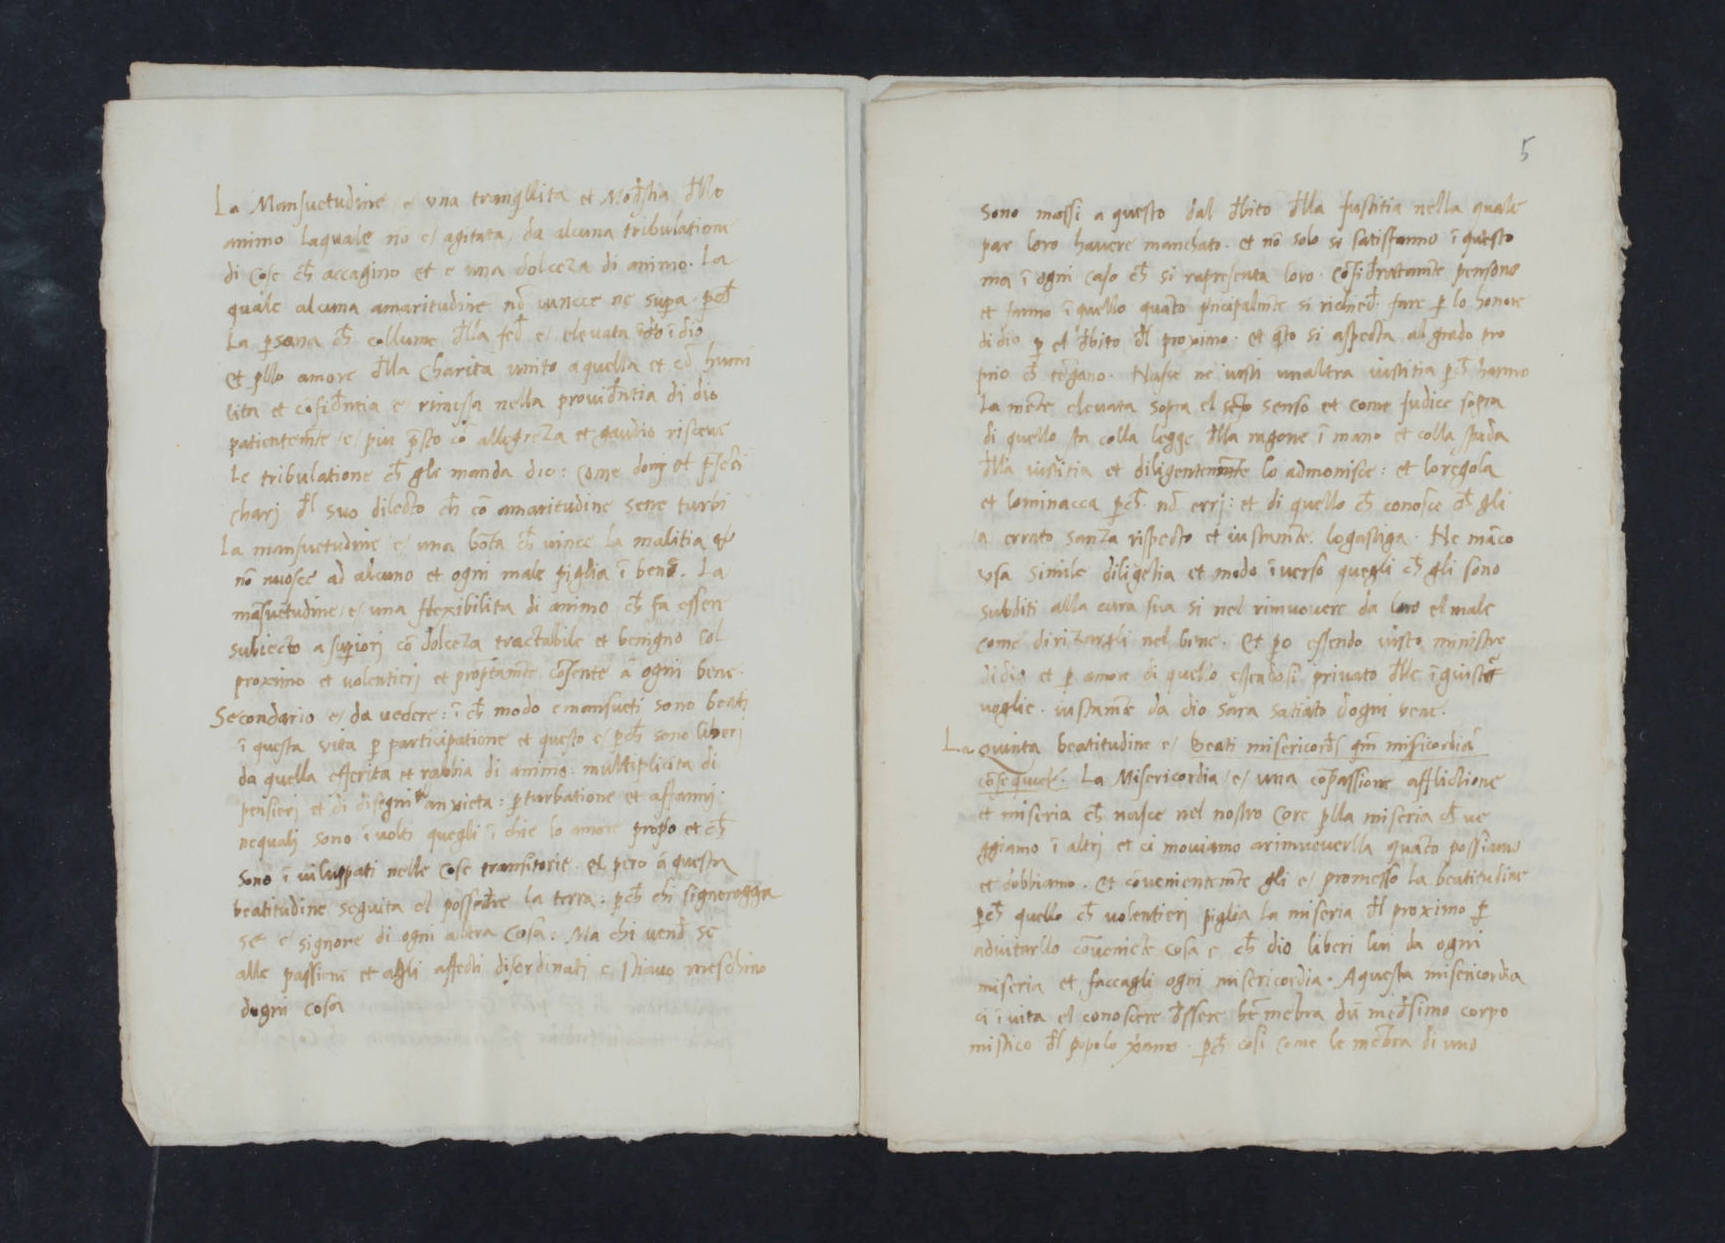 La Mansuetudine e/ una tranq̃llita et Mod̃stia d̃llo
animo laquale nõ e/ agitata/ da alcuna tribulatione
di cose ch̃ accagino et e una dolceza di animo. La
quale alcuna amaritudine nõ vincce ne supa. pch̃
La psona ch̃ collume d̃lla fed̃ e/ elevata ĩ dio
et pllo amore d̃lla charita unito aquella et cõ humi
lita et cõfid̃ntia e/ rimessa nella provid̃ntia di dio
patientemẽte/e/ piu p̃sto cõ allegreza et gaudio risceve
Le tribulatione ch̃ gli manda dio: come donj et
charj d̃l suo dilecto ch̃ cõ amaritudine sene turbi
La mansuetudine e/ una bõta ch̃ vince la malitia et
nõ nuosce ad alcuno et ogni male piglia ĩ bene. La
mãsuetudine/e/ una flexibilita di animo ch̃ fa essen
subiecto a supiorj cõ dolceza tractabile et benigno col
proximo et volentierj et prõptamẽte cõsente a ogni bene.
Secondario e/ da vedere: ĩ ch̃ modo e mansueti sono beati
ĩ questa vita p participatione et questo e/ pch̃ sono liberj
da quella efferita et rabbia di animo: multiplicita di
pensierj et di disegni anxieta: pturbatione et affannj.
nequalj sono ĩvolti quegli ĩ chie lo amore propio et ch̃
sono ĩ viluppati nelle cose transitorie. et pero a questa
beatitudine seguita el possed̃re la terra: pch̃ chi signoreggia
se e/ signore di ogni altra cosa: Ma chi vend̃ se
alle passione et agli affecti disordinati e/ stiavo meschino
dogni cosa
5
sono mossi a questo dal d̃bito d̃lla Justitia nella quale
par loro havere manchato. et nõ solo si satisfanno ĩ questo
ma ĩ ogni caso ch̃ si rapresenta loro. cõsid̃ratamẽte pensono
et fanno ĩ quello quãto pncipalmẽte si richied̃ fare p lo honore
di dio p el d̃bito d̃l proximo. et q̃to si aspecta al grado pro
prio ch̃ tẽgano. Nasce ne iusti unaltra iustitia pch̃ hanno
La mẽte elevata sopra el senso et come Judice sopra
di quello sta colla legge d̃lla ragone ĩ mano et colla spada
d̃lla iustitia et diligentemẽte lo admonisce: et loregola
et lominacca pch̃ nõ errj: et di quello ch̃ conosce ch̃ gli
a errato sanza rispecto et iustamẽte. logastiga. Ne mãco
usa simile diligẽtia et modo ĩverso quegli ch̃ gli sono
subditi alla cura sua si nel rimuovere da loro el male
come dirizargli nel bene. Et po essendo iusto ministro
di dio et p amore di quello essendosi privato d̃lle ĩgiuste
voglie. iustamẽte da dio sara satiato dogni bene.
La quinta beatitudine e/ Beati misericord̃s qm̃ misicordiã
cõsequẽt̃. La Misericordia/e/ una cõpassione afflictione
et miseria ch̃ nasce nel nostro core plla miseria ch̃ ve
ggiamo ĩ altrj et ci moviamo arimuoverlla quãto possiamo
et dobbiamo. Et cõvenientemẽte gli e/ promesso la beatitudine
pch̃ quello ch̃ volentierj piglia la miseria d̃l proximo p
adiutarllo cõveniẽte cosa e ch̃ dio liberi lui da ogni
miseria et faccagli ogni misericordia. Aquesta misericordia
ci ĩvita el conoscere d̃ssere mẽbra dũ med̃simo corpo
mistico d̃l popolo xp̃iano. pch̃ cosi come le mẽbra di uno